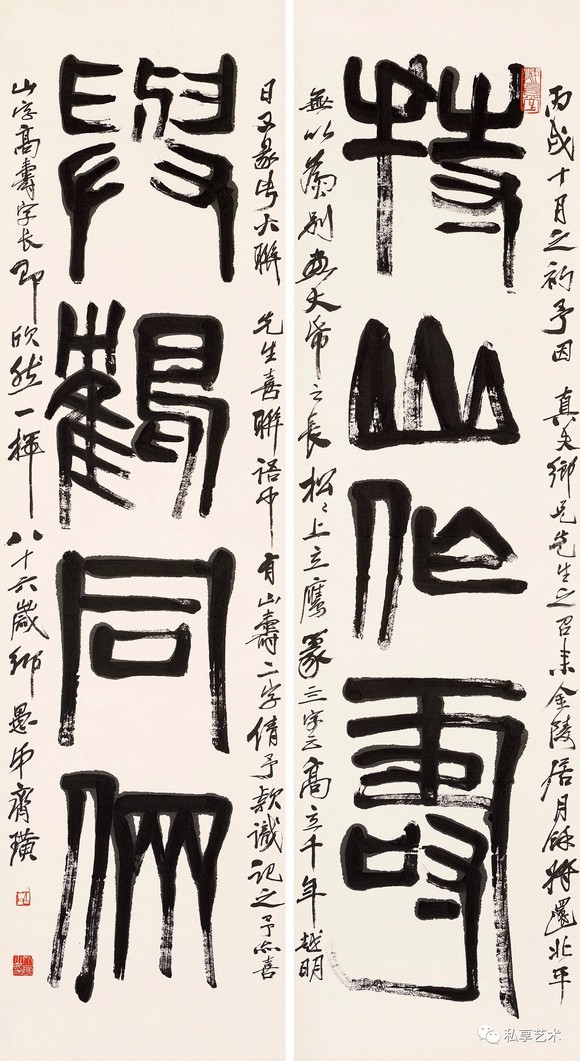 持山作壽
丙戌十月之初予因 真夫鄉兄先生之召來金陵居月餘將還北平
無以為別畫大幅之長松〻上立鷹篆三字云高立千年越明
與鶴同
日又篆此大聯 先生喜聯語中有山壽二字倩予款識記之予亦喜
山字高壽字長即欣然一揮 八十六歲鄉愚弟齊璜
私享艺术